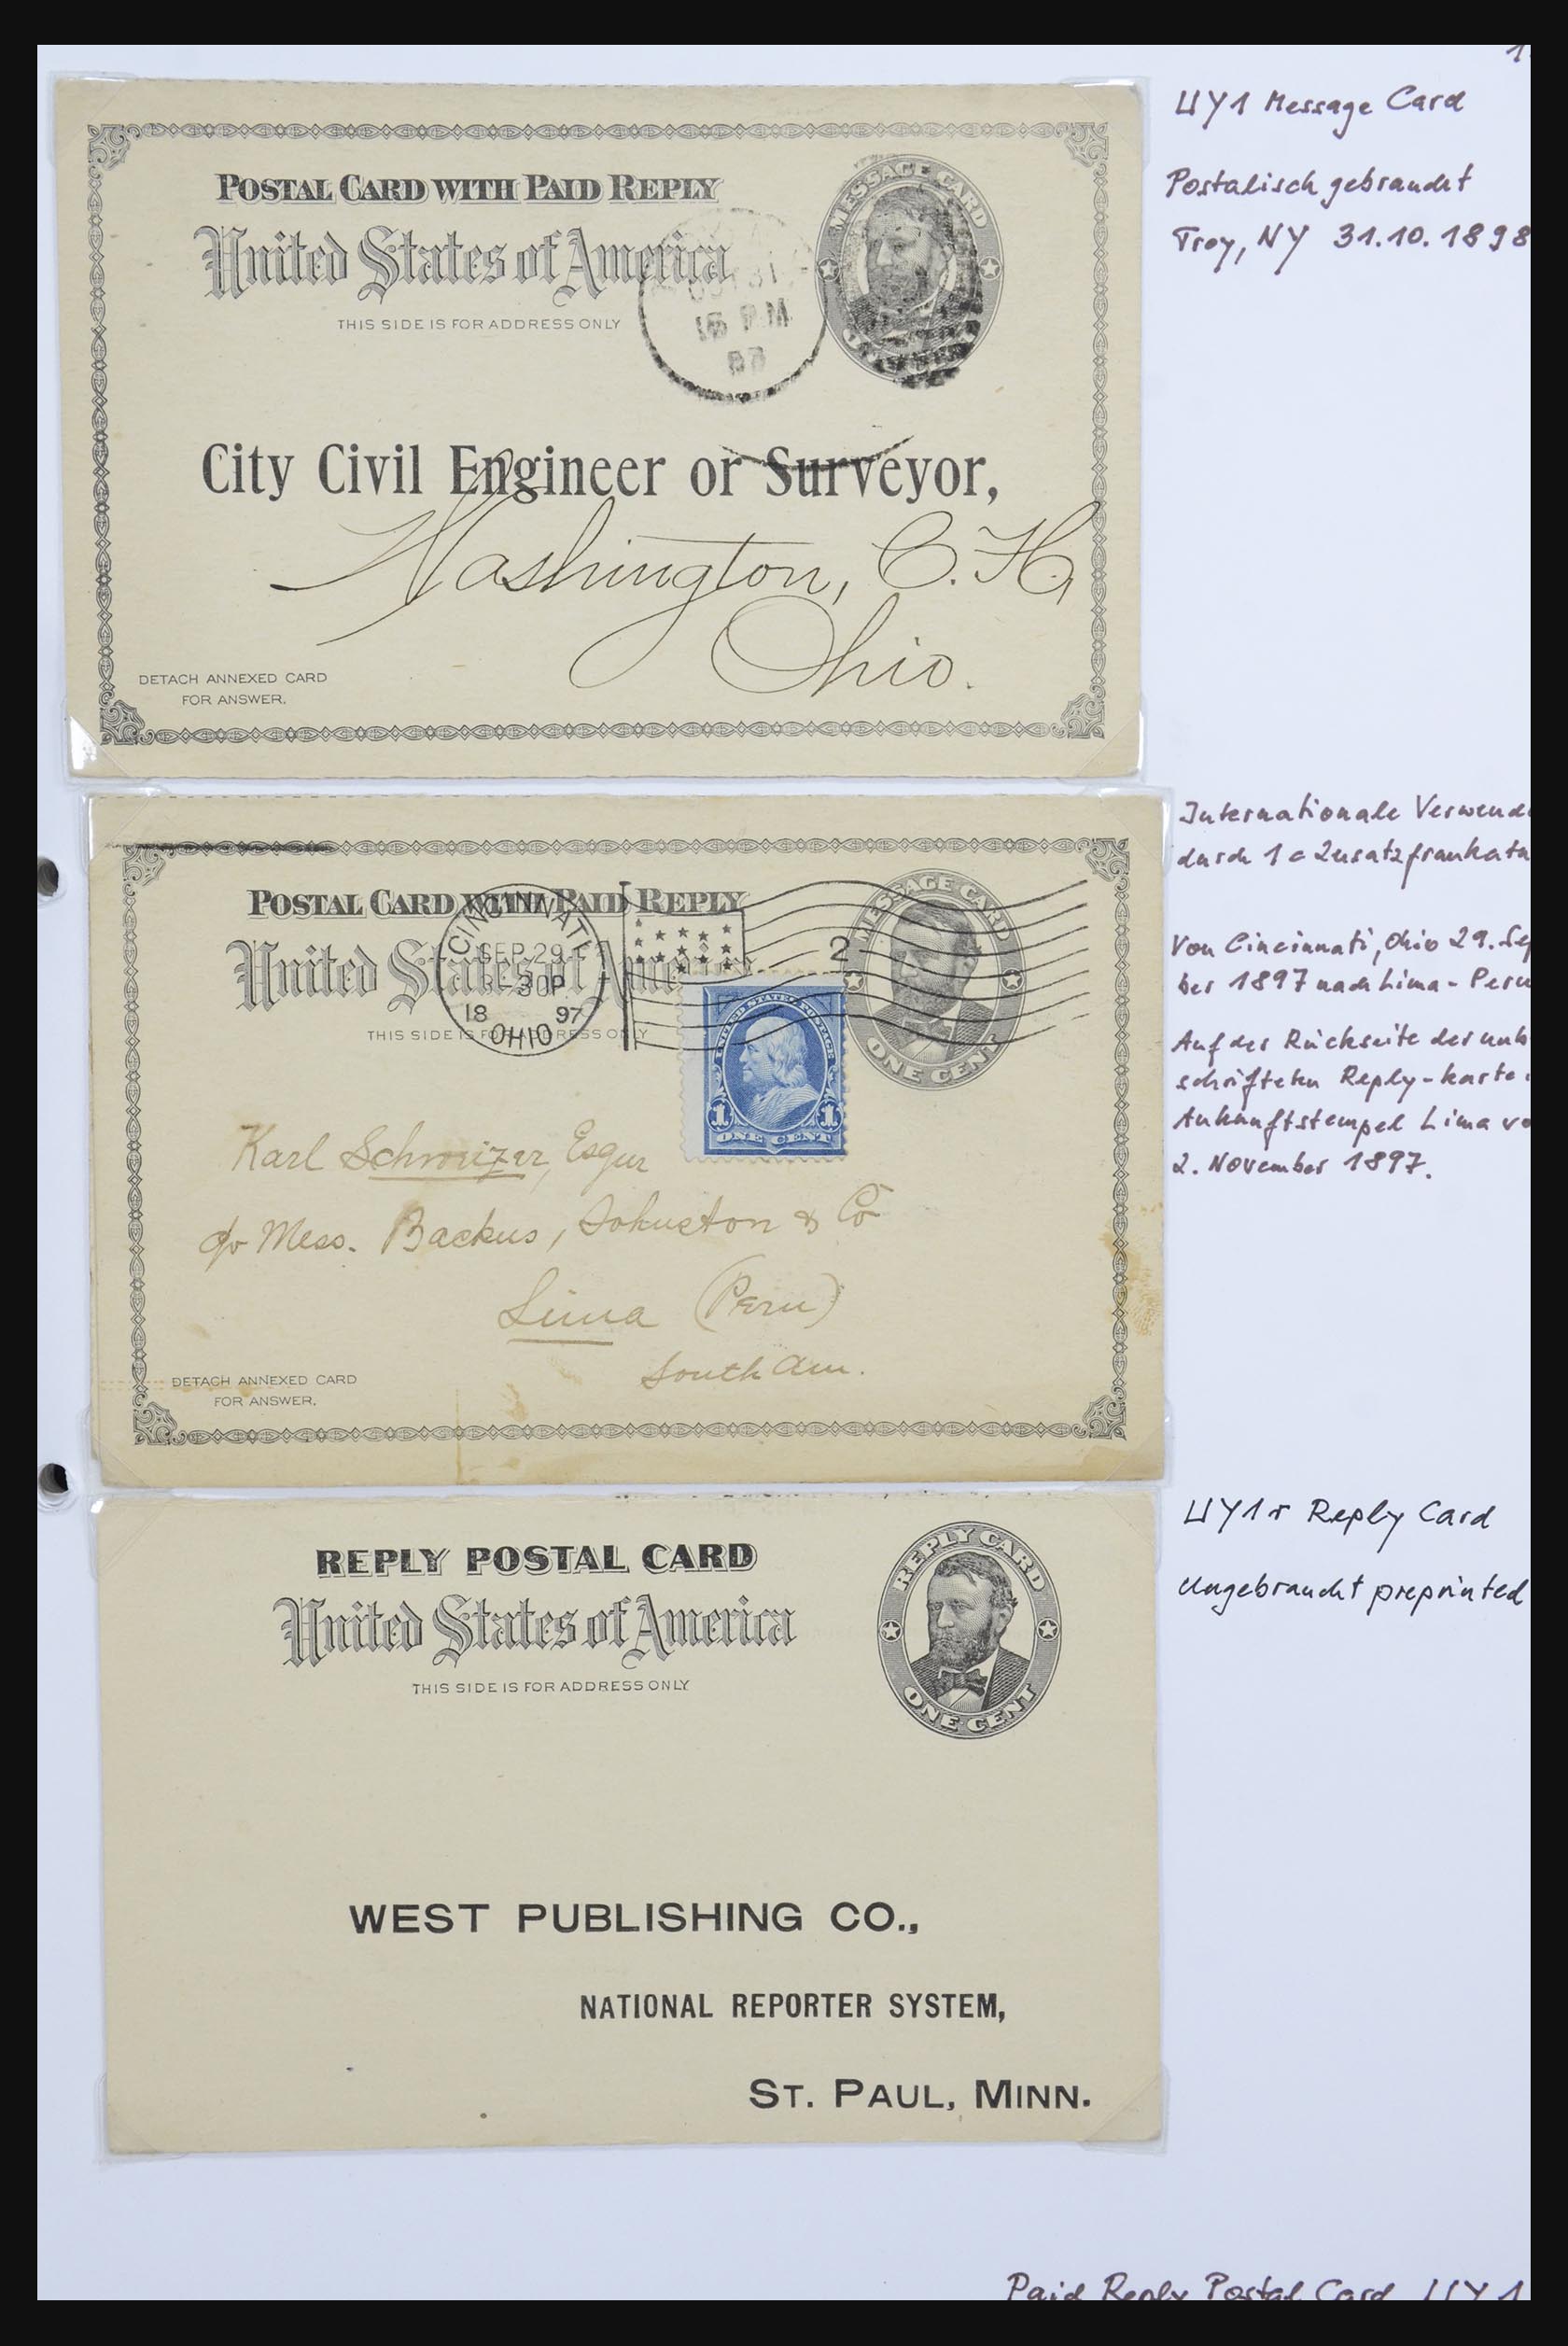 UY1 Message Card
Postalisch gebraucht
Troy, NY 31.10.1898
POSTAL CARD WITH PAID REPLY
United States of America
THIS SIDE IS FOR ADDRESS ONLY
MESSAGE CARD
OCT 31
P.M
City Civil Engineer or Surveyor,
Washington, C.H,
Ohio.
DETACH ANNEXED CARD
FOR ANSWER.
Internationale Verwend
durch 1 c Zusatzfrankatu
Von Cincinnati, Ohio 29. Sep
ber 1897 nach Lima - Peru
Auf der Rückseite der unb
schrifteten Reply-karte
Ankunftstempel Lima vo
2. November 1897.
POSTAL CARD WITH PAID REPLY
United States of America
THIS SIDE IS FOR ADDRESS ONLY
CINCINNATI
SEP 29
30P
18 97
OHIO
2
MESSAGE CARD
ONE CENT
UNITED STATES POSTAGE
1 1
ONE CENT
Karl Schweizer, Esqur
c/o Mess. Backus, Johnston & Co
Lima (Peru)
South Am.
DETACH ANNEXED CARD
FOR ANSWER.
UY1r Reply Card
Ungebraucht preprinted
REPLY POSTAL CARD
United States of America
THIS SIDE IS FOR ADDRESS ONLY
REPLY CARD
ONE CENT
WEST PUBLISHING CO.,
NATIONAL REPORTER SYSTEM,
ST. PAUL, MINN.
Paid Reply Postal Card UY 1